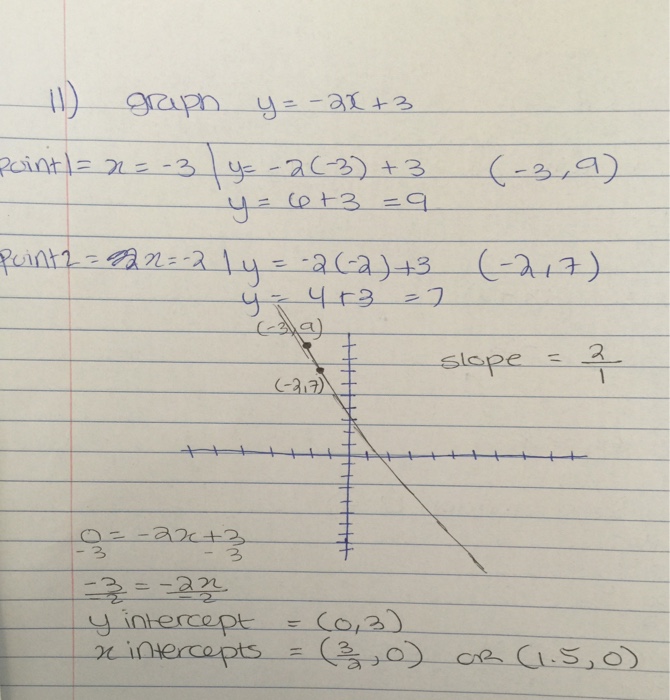 11) graph y = -2x + 3
point 1 = x = -3 | y = -2(-3) + 3 (-3, 9)
y = 6 + 3 = 9
point 2 = x = -2 | y = -2(-2) + 3 (-2, 7)
y = 4 + 3 = 7
(-3, 9)
slope = 2/1
(-2, 7)
0 = -2x + 3
-3 - 3
-3/-2 = -2x/-2
y intercept = (0, 3)
x intercepts = (3/2, 0) OR (1.5, 0)